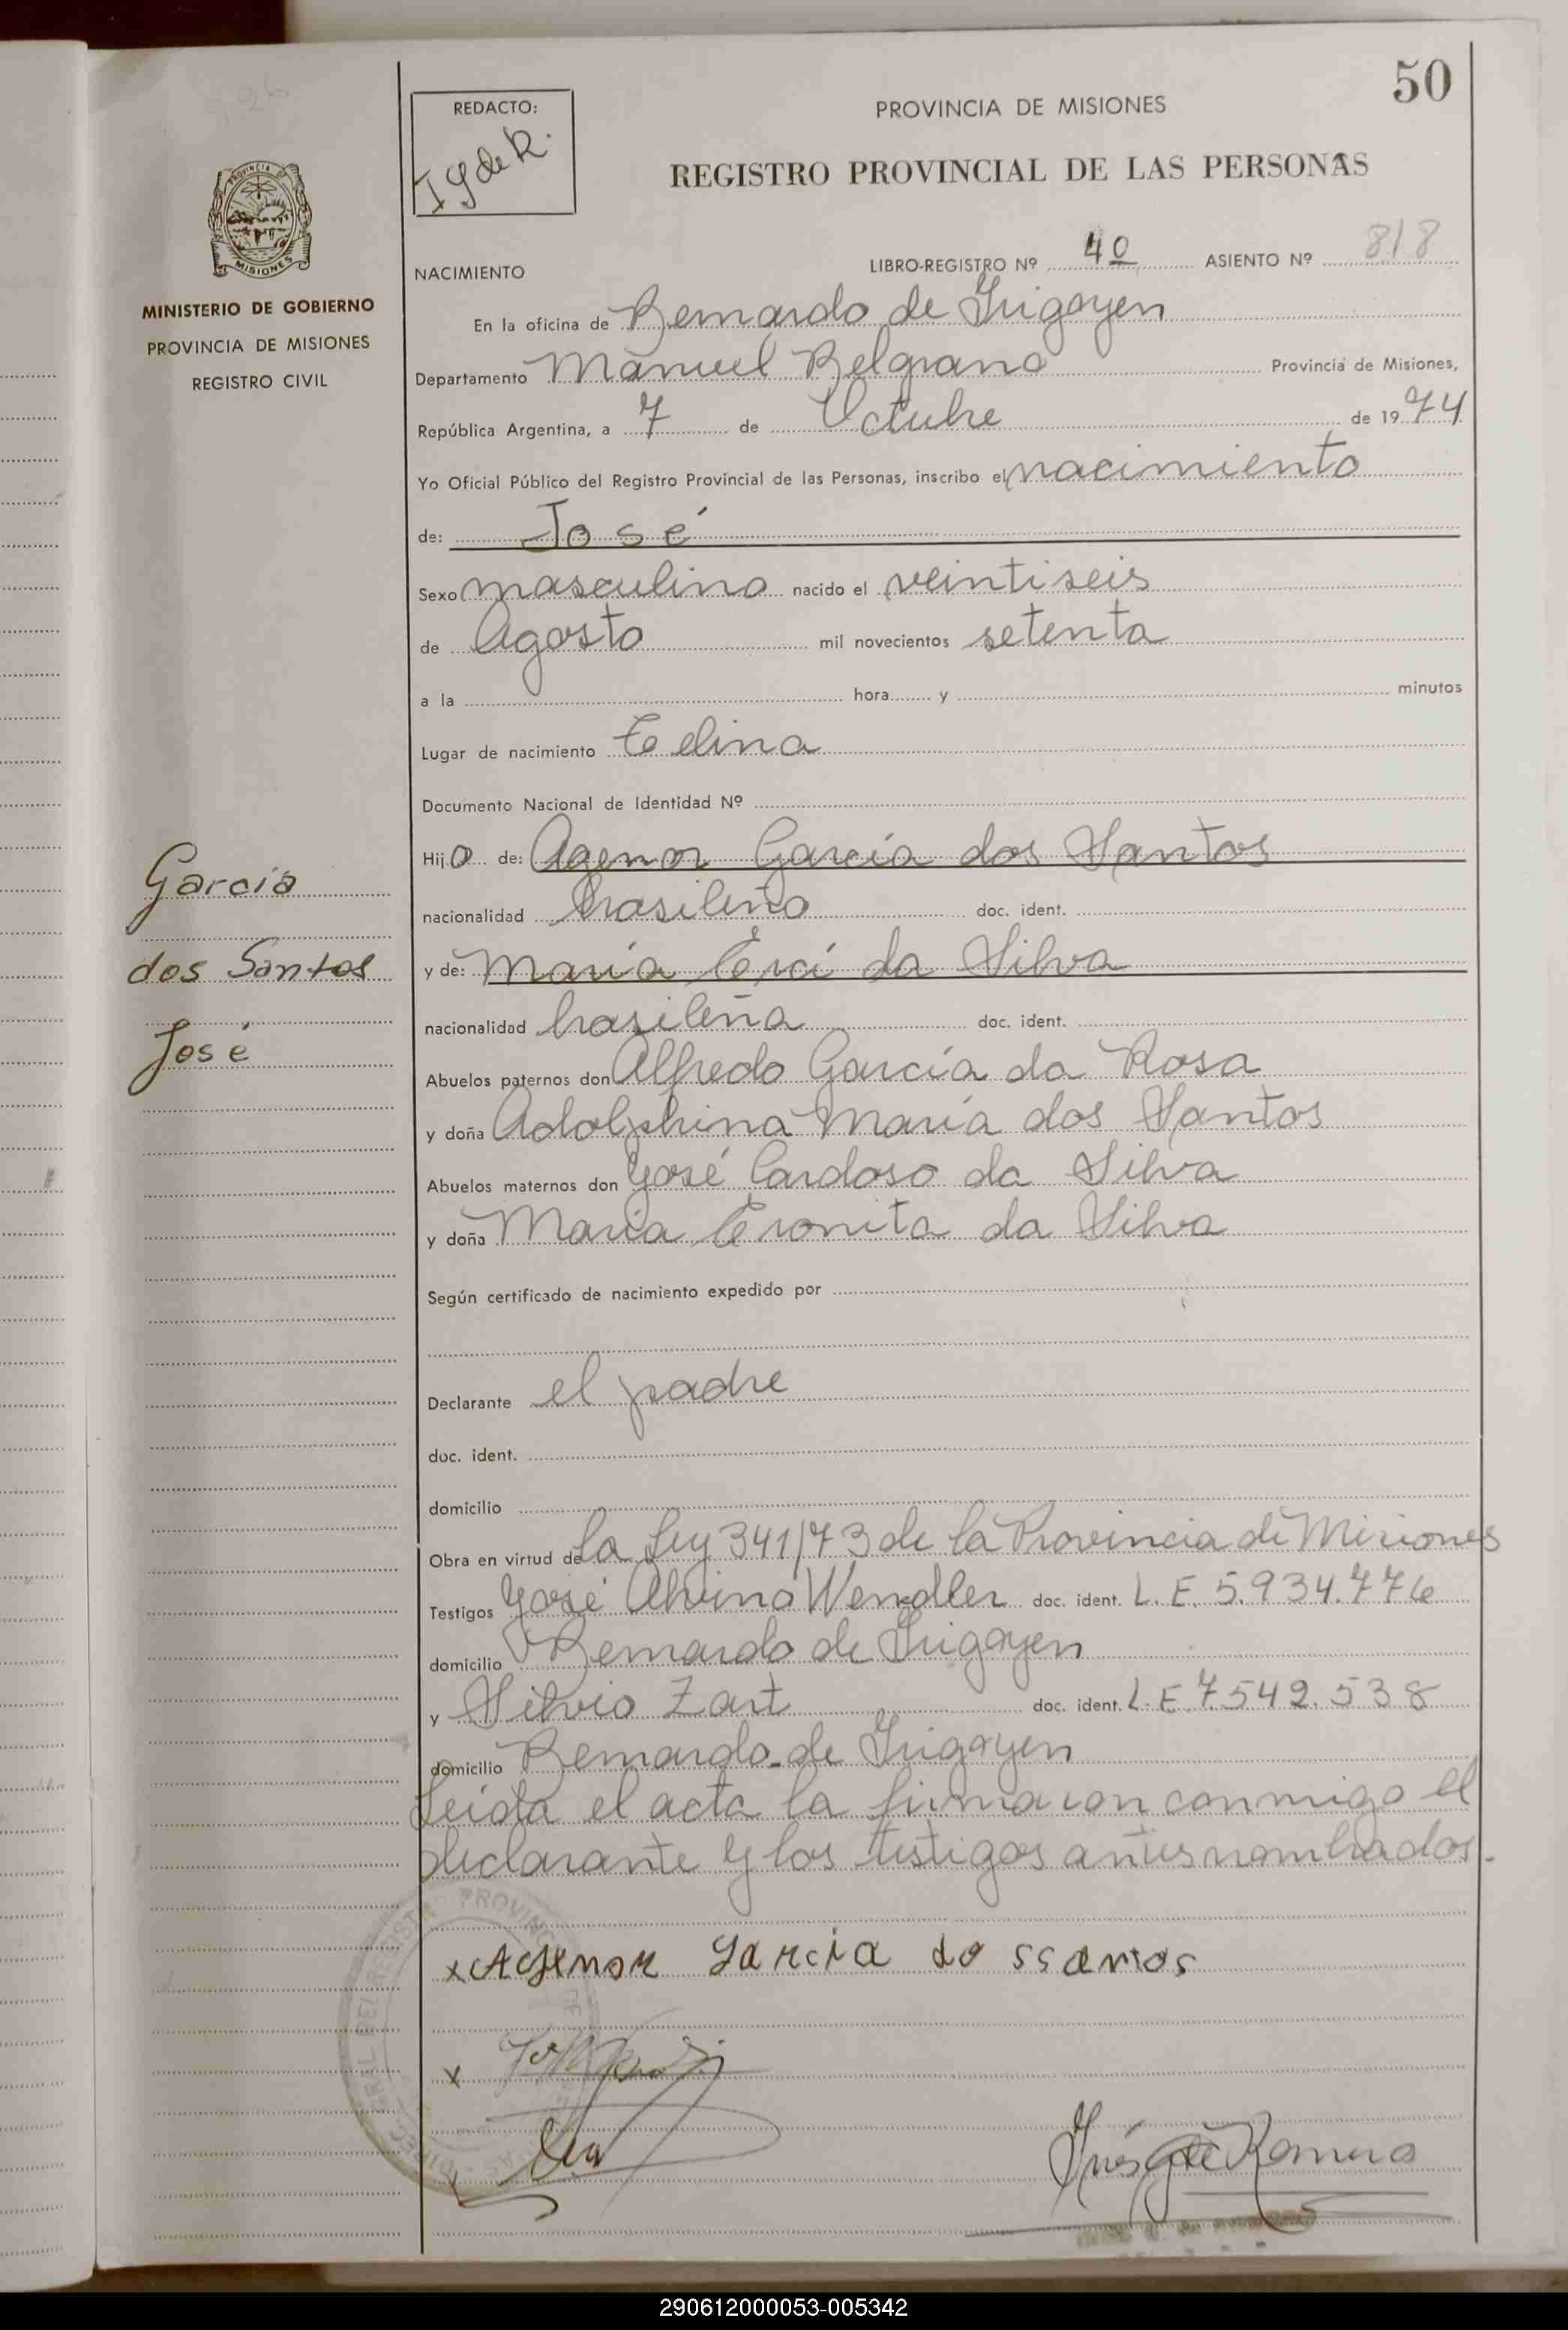 50
REDACTO:
I G de R.
PROVINCIA DE MISIONES
REGISTRO PROVINCIAL DE LAS PERSONAS
PROVINCIA DE
MISIONES
MINISTERIO DE GOBIERNO
PROVINCIA DE MISIONES
REGISTRO CIVIL
NACIMIENTO
LIBRO-REGISTRO Nº 40 ASIENTO Nº 818
En la oficina de Bernardo de Irigoyen
Departamento Manuel Belgrano Provincia de Misiones,
República Argentina, a 7 de Octubre de 1974
Yo Oficial Público del Registro Provincial de las Personas, inscribo el nacimiento
de: José
Sexo masculino nacido el veintiseis
de Agosto mil novecientos setenta
a la hora y minutos
Lugar de nacimiento Edina
Documento Nacional de Identidad Nº
Hijo de: Agenor García dos Santos
nacionalidad brasileño doc. ident.
y de: María Erci da Silva
nacionalidad brasileña doc. ident.
Abuelos paternos don Alfredo García da Rosa
y doña Adolphina María dos Santos
Abuelos maternos don José Cardoso da Silva
y doña María Eronita da Silva
García
dos Santos
José
Según certificado de nacimiento expedido por
Declarante el padre
doc. ident.
domicilio
Obra en virtud de la Ley 341/73 de la Provincia de Misiones
Testigos José Alvino Wendler doc. ident. L.E. 5.934.776
domicilio Bernardo de Irigoyen
y Silvio Zart doc. ident. L.E. 7.542.538
domicilio Bernardo de Irigoyen
Leída el acta la firmaron conmigo el
declarante y los testigos antes nombrados.
x Agenor Garcia do ssantos
x
x
Inés G de Romero
290612000053-005342